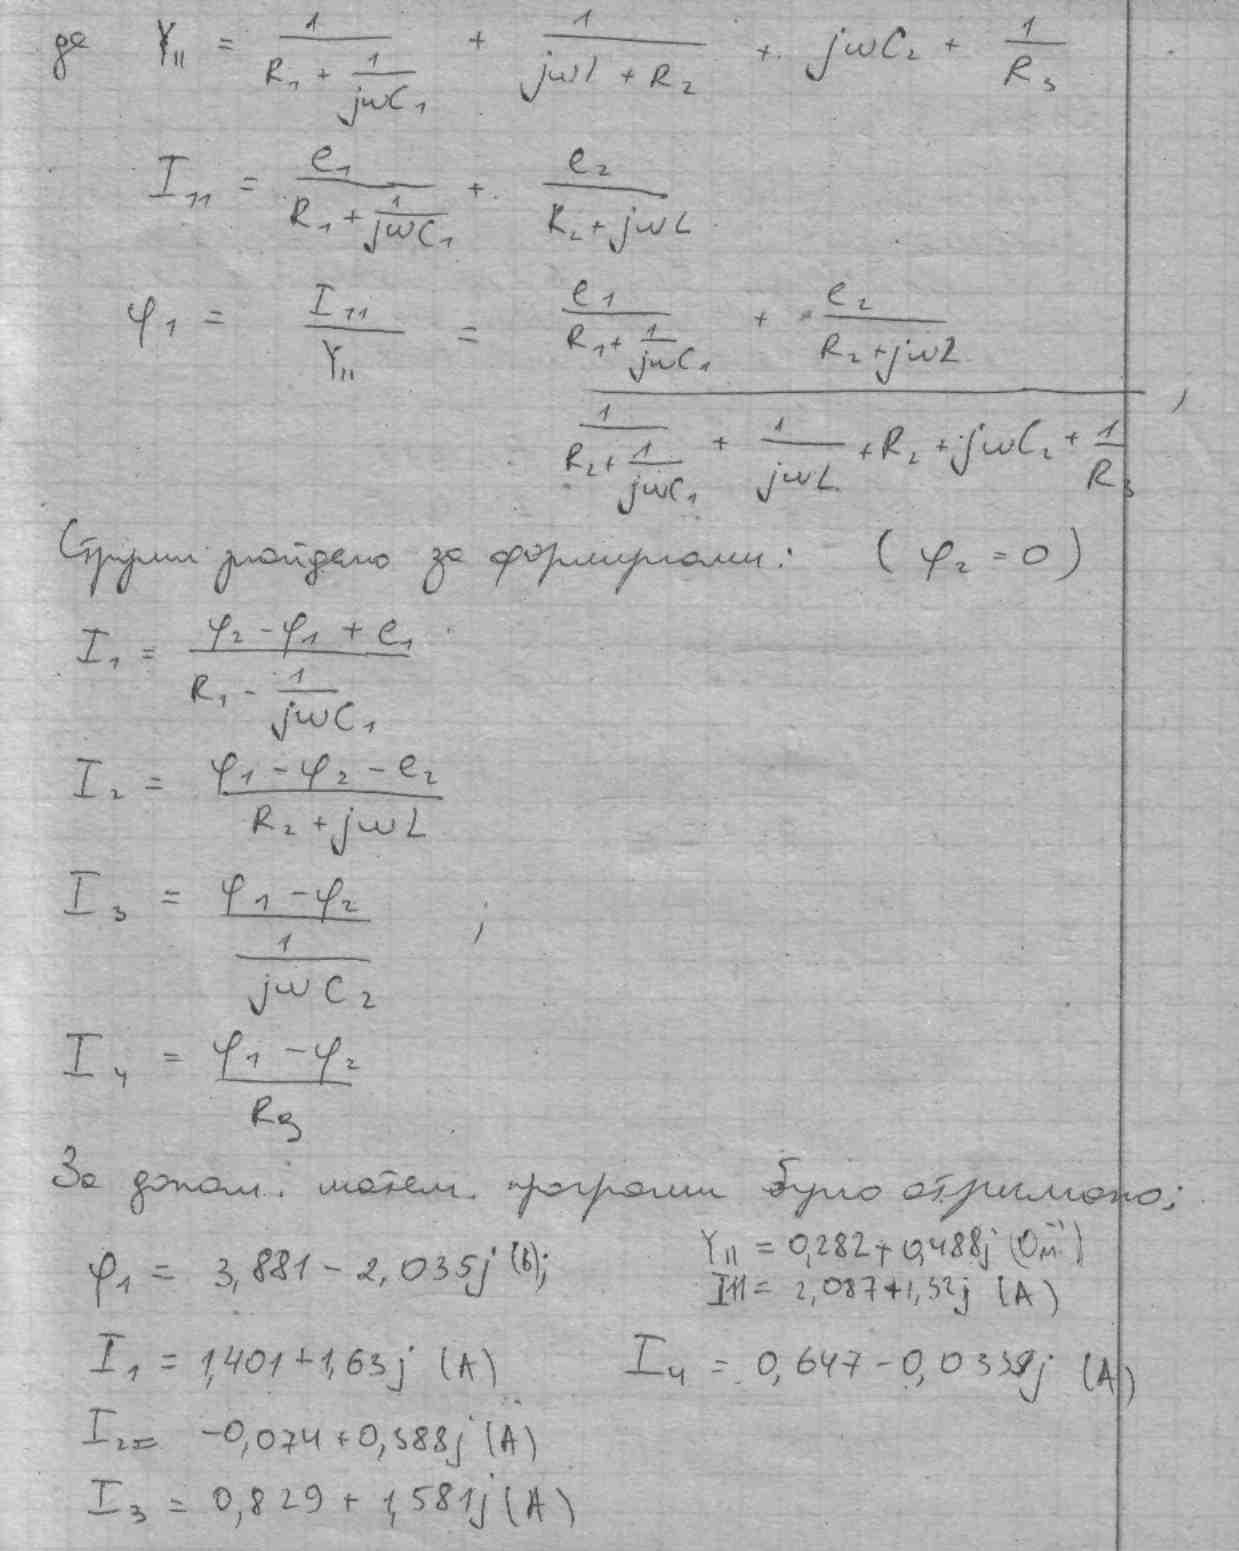 де Y₁₁ = 1/(R₁ + 1/(jωC₁)) + 1/(jωL + R₂) + jωC₂ + 1/R₃
I₁₁ = e₁/(R₁ + 1/(jωC₁)) + e₂/(R₂ + jωL)
φ₁ = I₁₁/Y₁₁ = (e₁/(R₁ + 1/(jωC₁)) + e₂/(R₂ + jωL))/(1/(R₂ + 1/(jωC₁)) + 1/(jωL) + R₂ + jωC₂ + 1/R₃),
Струми знайдено за формулами: (φ₂ = 0)
I₁ = (φ₂ - φ₁ + e₁)/(R₁ - 1/(jωC₁))
I₂ = (φ₁ - φ₂ - e₂)/(R₂ + jωL)
I₃ = (φ₁ - φ₂)/(1/(jωC₂)) ;
I₄ = (φ₁ - φ₂)/R₃
За допом. матем. програми було отримано;
φ₁ = 3,881 - 2,035j (В);
Y₁₁ = 0,282 + 0,488j (Ом⁻¹)
I₁₁ = 2,087 + 1,32j (A)
I₁ = 1,401 + 1,63j (A) I₄ = 0,647 - 0,0339j (A)
I₂ = -0,074 + 0,388j (A)
I₃ = 0,829 + 1,581j (A)